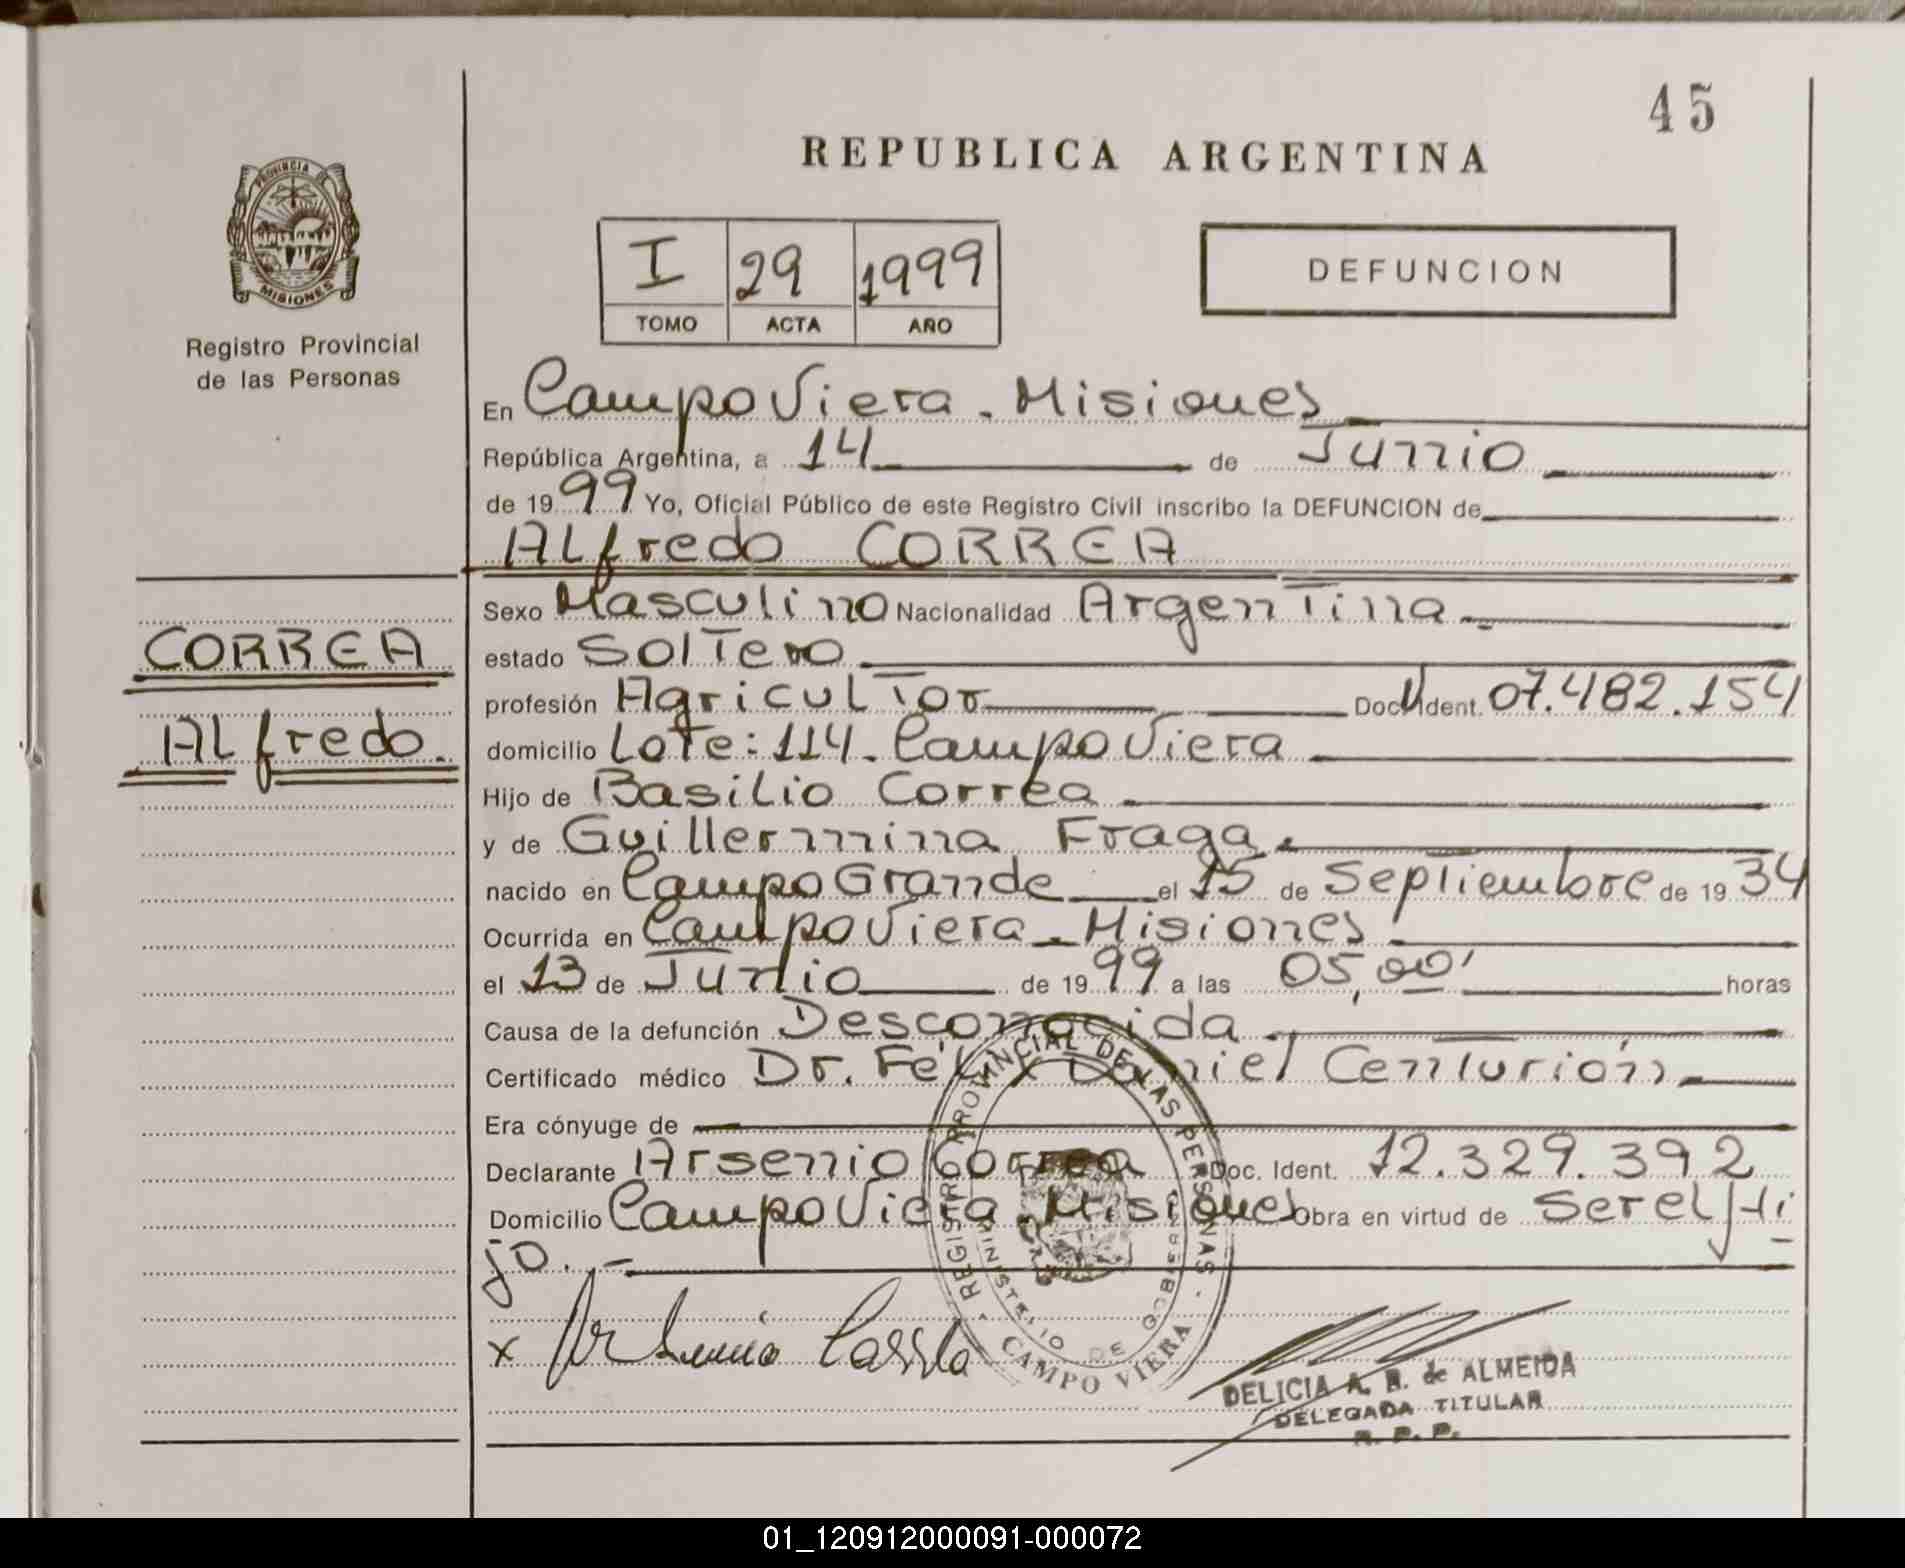 45
REPUBLICA ARGENTINA
PROVINCIA DE
MISIONES
Registro Provincial
de las Personas
I 29 1999
TOMO ACTA AÑO
DEFUNCION
En Campo Viera - Misiones
República Argentina, a 14 de Junio
de 1999 Yo, Oficial Público de este Registro Civil inscribo la DEFUNCION de
Alfredo CORREA
CORREA
Alfredo.
Sexo Masculino Nacionalidad Argentina
estado Soltero
profesión Agricultor Doc. Ident. 07.482.154
domicilio Lote: 114 - Campo Viera
Hijo de Basilio Correa
y de Guillermina Fraga.
nacido en Campo Grande el 15 de Septiembre de 1934
Ocurrida en Campo Viera - Misiones
el 13 de Junio de 1999 a las 05,00' horas
Causa de la defunción Desconocida
Certificado médico Dr. Félix Daniel Centurión
Era cónyuge de
Declarante Arsenio Correa Doc. Ident. 12.329.392
Domicilio Campo Viera - Misiones Obra en virtud de Ser el Hi
jo. -
REGISTRO PROVINCIAL DE LAS PERSONAS
MINISTERIO DE GOBIERNO
CAMPO VIERA
x Arsenio Correa
DELICIA A. B. de ALMEIDA
DELEGADA TITULAR
R. P. P.
01_120912000091-000072